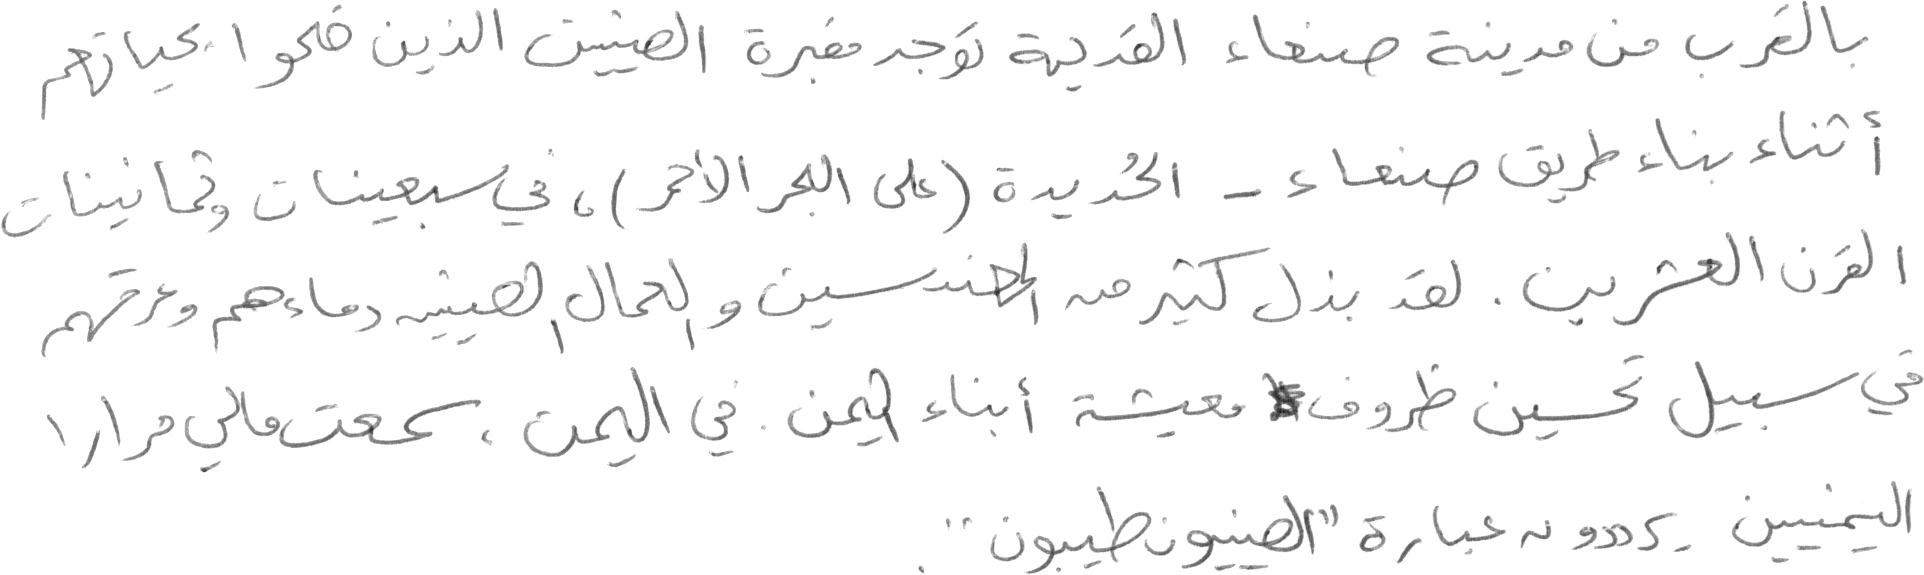 بالقرب من مدينة صنعاء القديمة توجد مقبرة الصينيين الذين ضحوا بحياتهم
أثناء بناء طريق صنعاء - الحُديدة (على البحر الأحمر)، في سبعينات وثمانينات
القرن العشرين. لقد بذل كثير من المهندسين والعمال الصينيين دماءهم وعرقهم
في سبيل تحسين ظروف معيشة أبناء اليمن. في اليمن، سمعت مالي مرارا
اليمنيين يرددون عبارة "الصينيون طيبون".